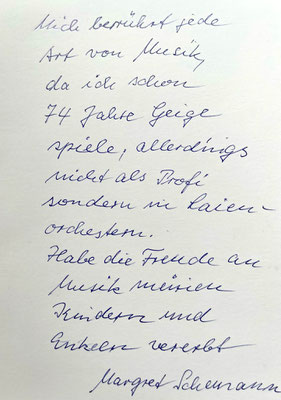 Mich berührt jede
Art von Musik,
da ich schon
74 Jahre Geige
spiele, allerdings
nicht als Profi
sondern in Laien-
orchestern.
Habe die Freude an
Musik meinen
Kindern und
Enkeln vererbt
Margret